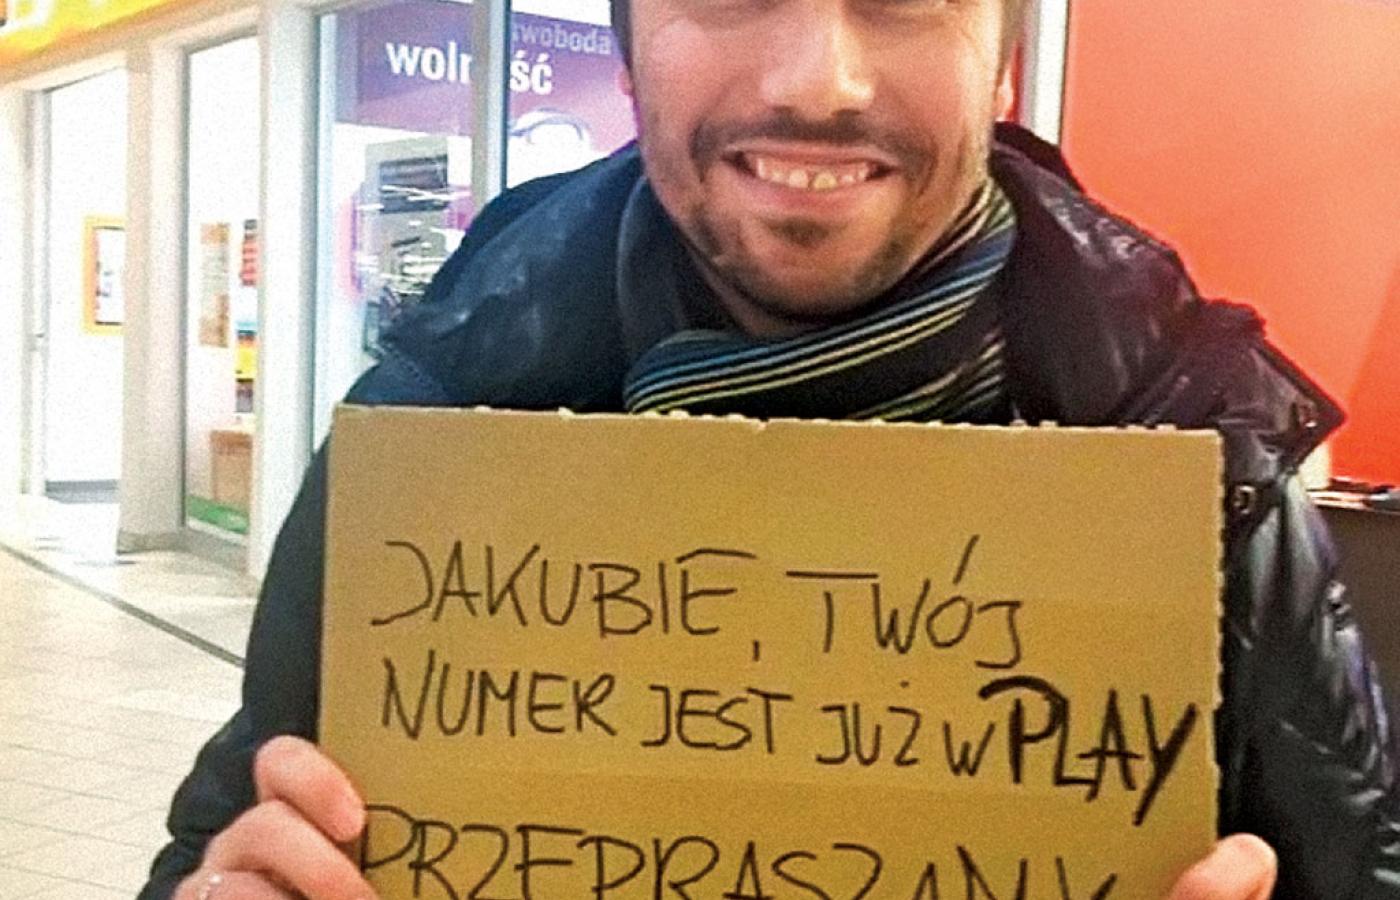 swoboda
wolność
JAKUBIE, TWÓJ
NUMER JEST JUŻ W PLAY
PRZEPRASZAMY